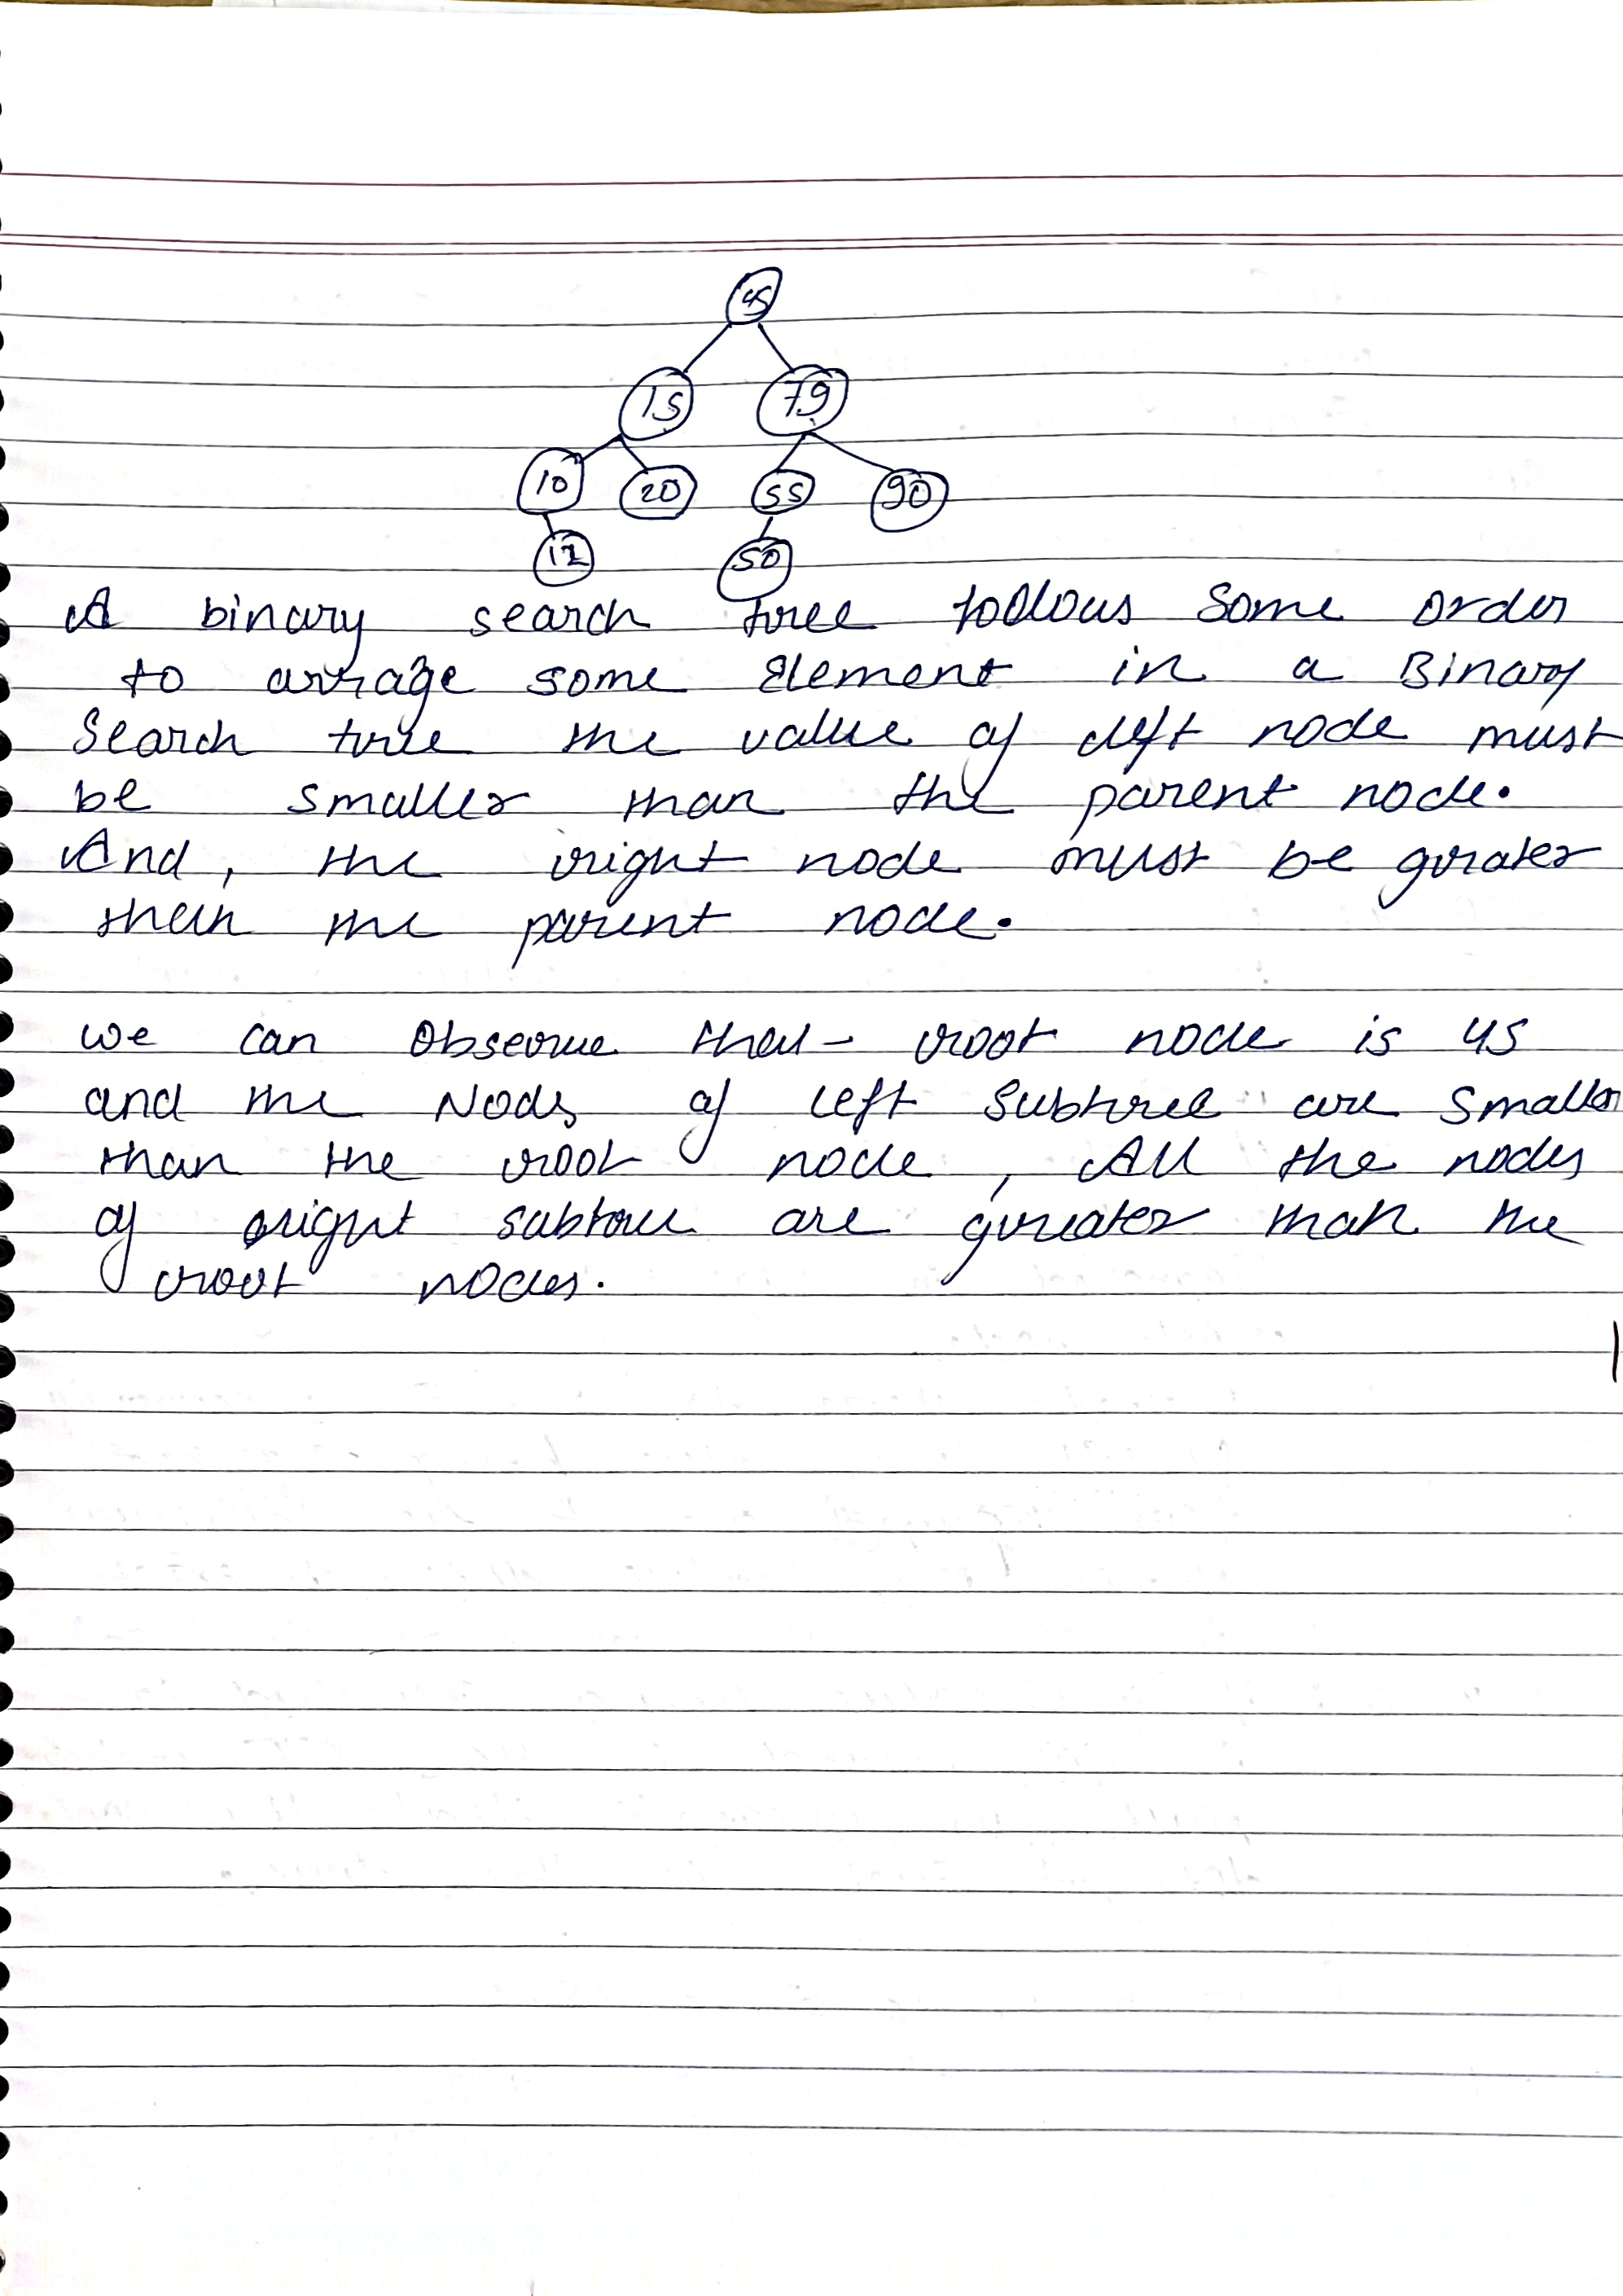 45
15 79
10 20 55 90
12 50
A binary search tree follows some order
to arrage some Element in a Binary
Search tree the value of left node must
be smaller than the parent node.
And, the right node must be greater
then the parent node.
we can Observe that - root node is 45
and the Nods of left Subtree are smaller
than the root node, All the nodes
of right subtree are greater than the
root nodes.